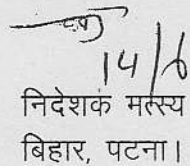 14/6
निदेशक मत्स्य
बिहार, पटना।